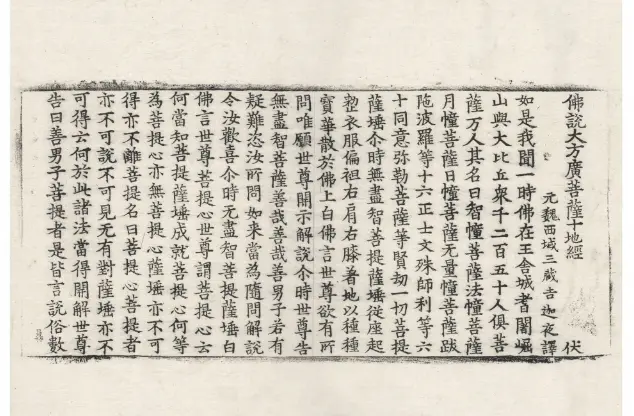 佛說大方廣菩薩十地經
伏
元魏西域三藏吉迦夜譯
如是我聞一時佛在王舍城耆闍崛
山與大比丘衆千二百五十人俱菩
薩万人其名曰智幢菩薩法幢菩薩
月幢菩薩日幢菩薩无量幢菩薩跋
陁波羅等十六正士文殊師利等六
十同意弥勒菩薩等賢刼一切菩提
薩埵尒時無盡智菩提薩埵從座起
整衣服偏袒右肩右膝著地以種種
寶華散於佛上白佛言世尊欲有所
問唯願世尊開示解說尒時世尊告
無盡智菩薩善哉善哉善男子若有
疑難恣汝所問如來當為隨問解說
令汝歡喜尒時无盡智菩提薩埵白
佛言世尊菩提心世尊謂菩提心云
何當知菩提薩埵成就菩提心何等
為菩提心亦無菩提心薩埵亦不可
得亦不離菩提名曰菩提心菩提者
亦不可說不可見无有對薩埵亦不
可得云何於此諸法當得開解世尊
告曰善男子菩提者是皆言說俗數